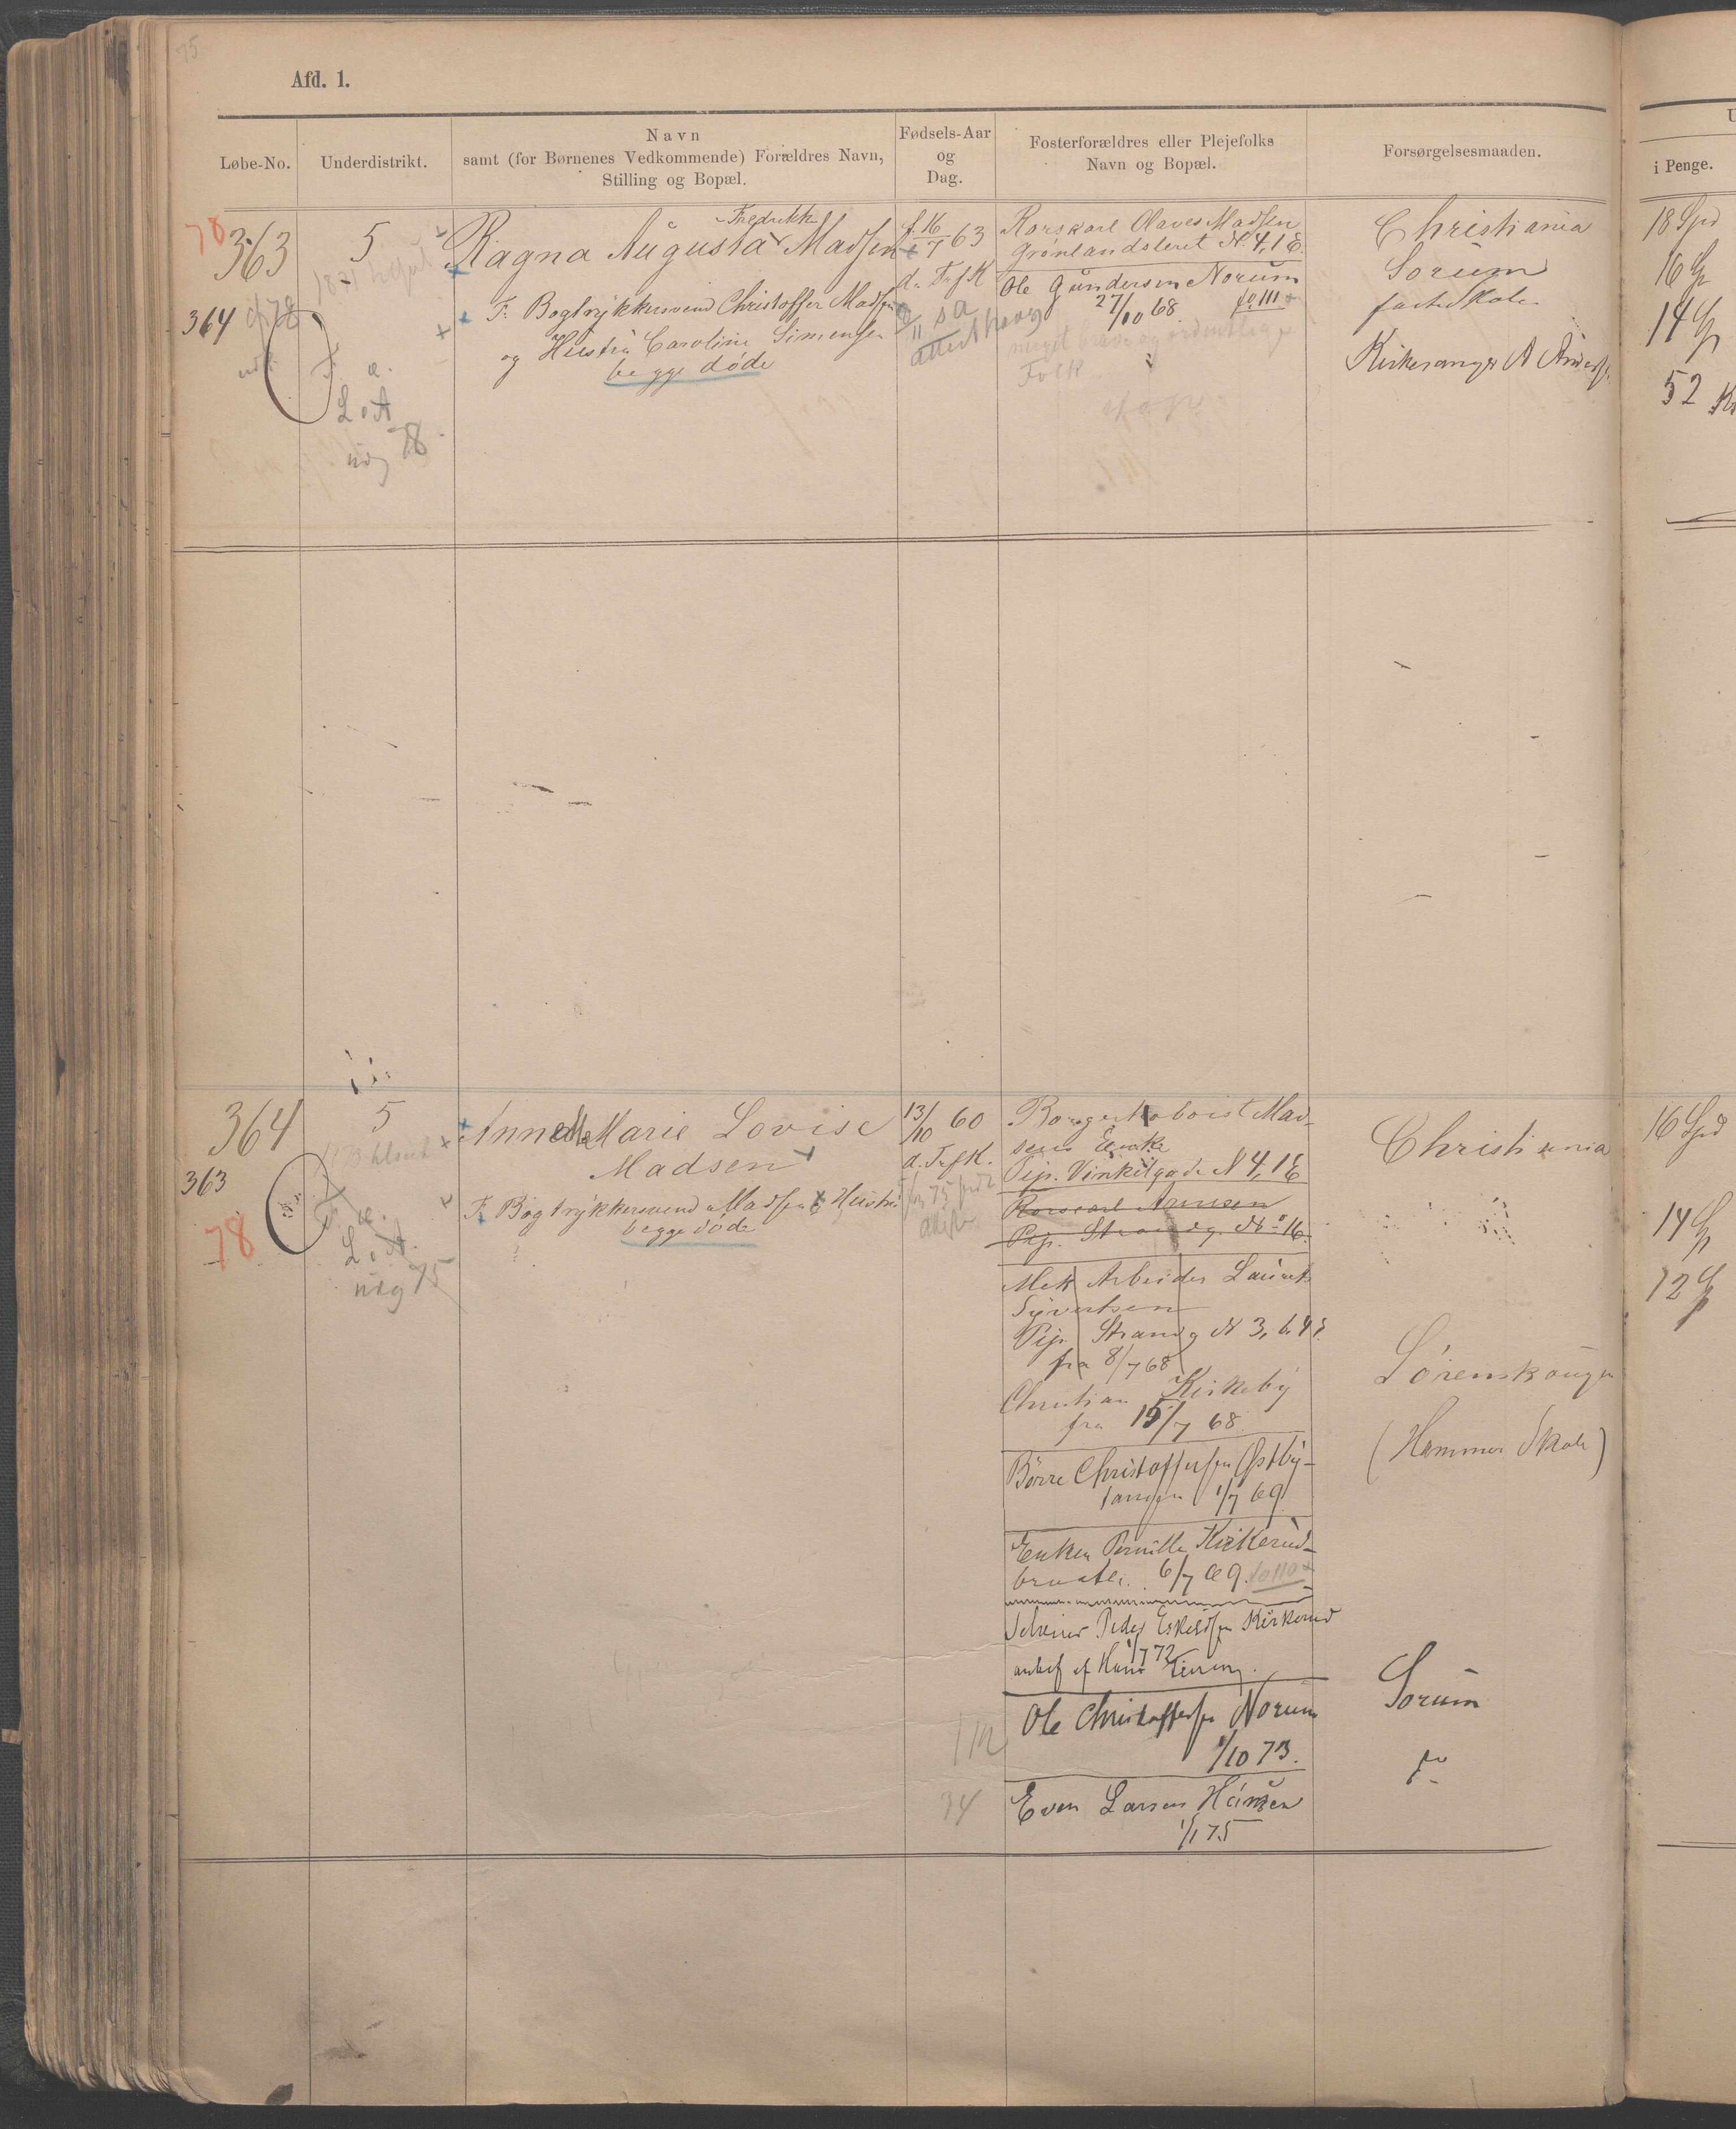 75
Afd. 1.
Løbe-No.
Underdistrikt.
Navn
samt (for Børnenes Vedkommende) Forældres Navn,
Stilling og Bopæl.
Fødsels-Aar
og
Dag.
Fosterforældres eller Plejefolks
Navn og Bopæl.
Forsørgelsesmaaden.
i Penge.
78
363
364
5
L. A
78
Fredrikke
Ragna Augusta Madsen
F. Bogtrykkersvend Christoffer Madsen
og Hustru Caroline Simensen
begge døde
f. 16/7 63
d. Trfk
Rorskarl Olaves Madsen
Grønlandsleret N. 4, 1 E.
Ole Gundersen Norum
27/10 68. fo 111
meget brave og ordentlige
Folk
Christiania
Sorum
faste Skole
Kirkesanger A
18 Spd
16 Sp
14 Sp
52 Kr
364
363
78
5
L. A.
75
Annette Marie Lovise
Madsen
F. Bogtrykkersvend Madsen & Hustru
begge døde
13/10 60
d. Trfk.
Madsens Enke
Pip. Vinkelgade N 4, 1 E
Rorskarl Arnesen
Pip. Strandg. No 16.
Mek Arbeider Laurits
Syvertsen
Pip. Strandg N 3, b. 4 E.
fra 8/7 68
Christian Kirkeby
fra 15/7 68
Børre Christoffersen Østby-
tangen 1/7 69
Enken Pernille Kirkerud-
braaten. 6/7 69. fo 110
Peder Eskildsen Kirkerud
1/7 72
anbef af Hans
Ole Christoffersen Norum
1/10 73.
112
Even Larsen
1/1 75
34
Christiania
Lørenskougen
(Hammer Skole)
Sorum
16 Spd
14 Sp
12 Sp